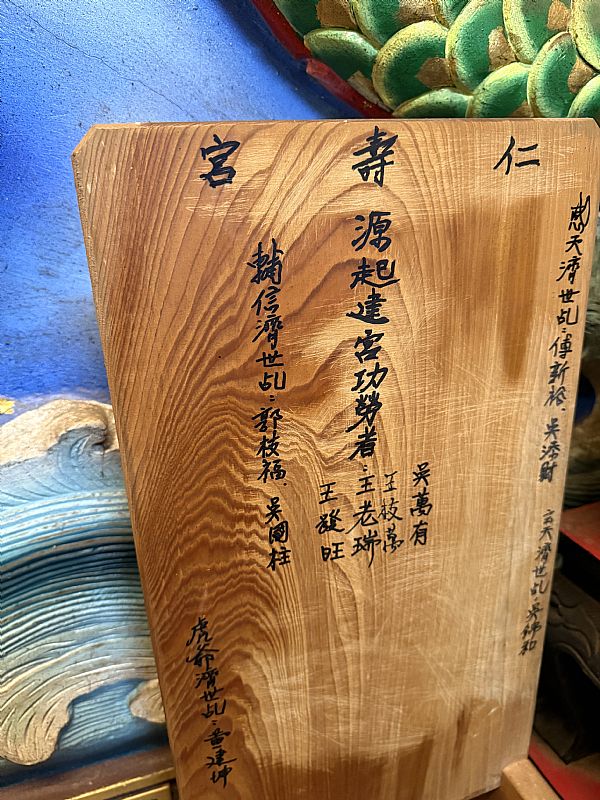 仁壽宮
天濟世乩：傅新裕、吳添財
玄天濟世乩：吳和
源起建宮功勞者：王老瑞
吳萬有
王枝萬
王發旺
輔信濟世乩：郭枝福、吳國柱
虎爺濟世乩：黃建坤